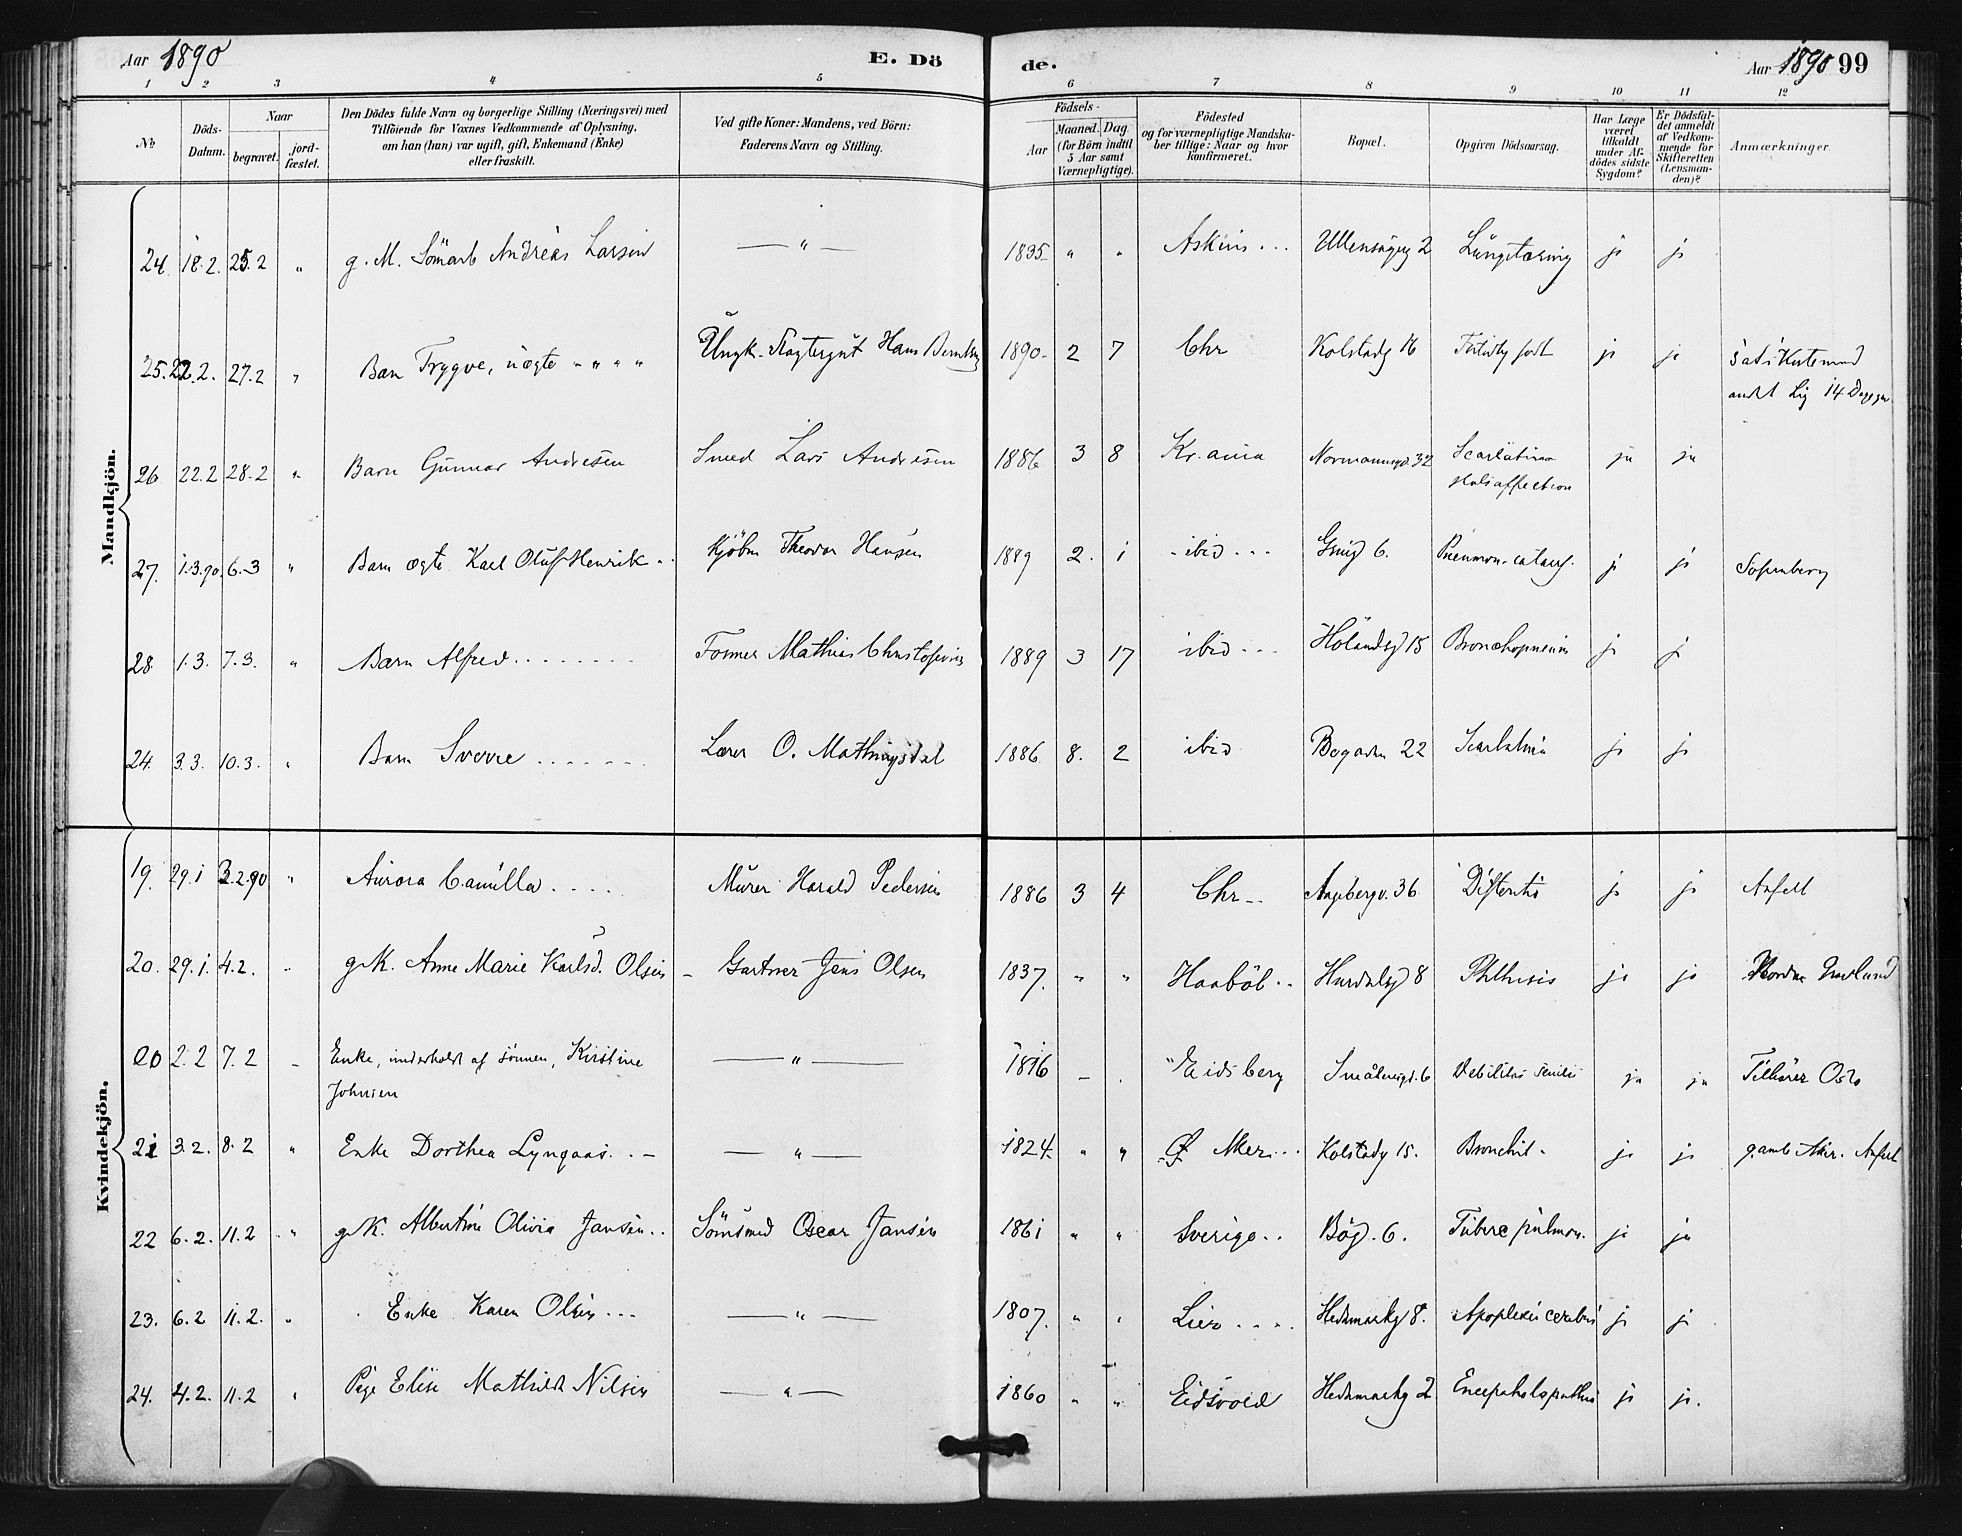 Aar 1890
E. Dö
de.
Aar 1890 99
1 2 3 4 5
6 7 8 9 10 11 12
No
Döds-Datum.
Naar
begravet.
jord-fæstet.
Den Dödes fulde Navn og borgerlige Stilling (Næringsvei) med
Tilföiende for Voxnes Vedkommende af Oplysning,
om han (hun) var ugift, gift, Enkemand (Enke)
eller fraskilt.
Ved gifte Koner: Mandens, ved Börn:
Faderens Navn og Stilling.
Födsels-
Aar
Maaned. Dag
(for Börn indtil
5 Aar samt
Værnepligtige).
Födested
og for værnepligtige Mandska-
ber tillige: Naar og hvor
konfirmeret.
Bopæl.
Opgiven Dödsaarsag.
Har Læge
været
tilkaldt
under Af-
dödes sidste
Sygdom?
Er Dödsfal-
det anmeldt
af Vedkom-
mende for
Skifteretten
(Lensman-
den)?
Anmærkninger.
Mandkjön.
24. 18.2. 25.2 " g. M. Andreas Larsen — " — 1835 " " Askim... 2 Lungetæring ja ja
25. 22.2. 27.2 " Barn Trygve, uægte " " " " Ungk. Hans 1890 2 7 Chr Kolstadg 16 født ja ja
Lig 14 Dage
26 22.2 28.2 " Barn Gunnar Andresen Smed Lars Andresen 1886 3 8 Kr.ania Normannsgd. 32 Scarlatina ja ja
Halsaffection
27. 1.3.90. 6.3 " Barn ægte Karl Oluf Henrik Kjöbm Theodor Hansen 1889 2. 1 - ibid - - - 6. Pneumon. catarrh. ja ja Sofienberg
28 1.3. 7.3. " Barn Alfred Former Mathias Christofersen 1889 3 17 ibid - - - Hölandsgd 15 Bronchopneum ja ja
24. 3.3. 10.3. " Barn Sverre Lærer O. Mathingsdal 1886 8. 2 ibid Bogaden 22 Scarlatina ja ja
Kvindekjön.
19. 29.1 3.2.90 " Aurora Camilla Murer Harald Pedersen 1886 3 4 Chr - - 36 Difteritis ja ja Anfelt
20. 29.1. 4.2. " g.K. Anne Marie Karlsd. Olsen - Gartner Jens Olsen 1837. " " Haaböl.. Hurdalsg 8 Phthisis ja ja
20 2.2 7.2 - Enke, underholdt af sönnen, Kirstine — " — 1816 - . Eidsberg Smålensgd. 6 Debilitas senilis ja ja Tilhörer Oslo
Johnsen
21 3.2. 8.2 " Enke Dorthea Lyngaas.. - — " — 1824. " " Ø Aker... Kolstadg 15. Bronchit - ja ja gamle Aker. Anfelt
22 6.2. 11.2 " g.K. Albertine Olivia Jansen.. Oscar Jansen 1861 " " Sverige.. Bög. 6. Tuberc pulmon. ja ja
23. 6.2 11.2. " Enke Karen Olsen... — " — 1807. " " Lier.... Hedemarkg 8. Apoplexi cerebri ja ja
24. 4.2. 11.2 " Pige Elise Mathilde Nilsen — " — 1860 " " Eidsvold Hedemarkg 2 Encephalopathia ja ja.